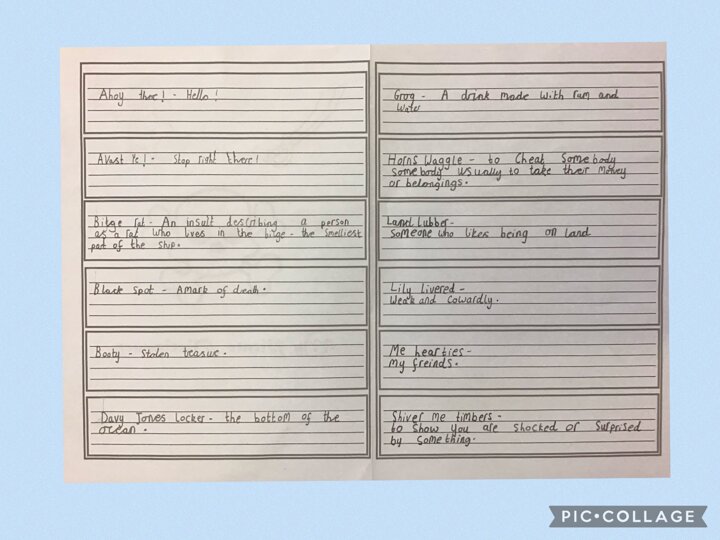 Ahoy ther! - Hello!
Avast Ye! - Stop right there!
Bilge rat - An insult describing a person
as a rat who lives in the bilge - the smelliest
part of the ship.
Black Spot - A mark of death.
Booty - Stolen teasue.
Davy Jones Locker - the bottom of the
ocean.
Grog - A drink made with rum and
water
Horns Waggle - to Cheat Somebody
somebody usually to take their money
or belongings.
Land lubber -
Someone who likes being on land
Lily livered -
Weak and cowardly.
Me hearties -
my freinds.
Shiver me timbers -
to show you are shocked or surprised
by something.
PIC•COLLAGE